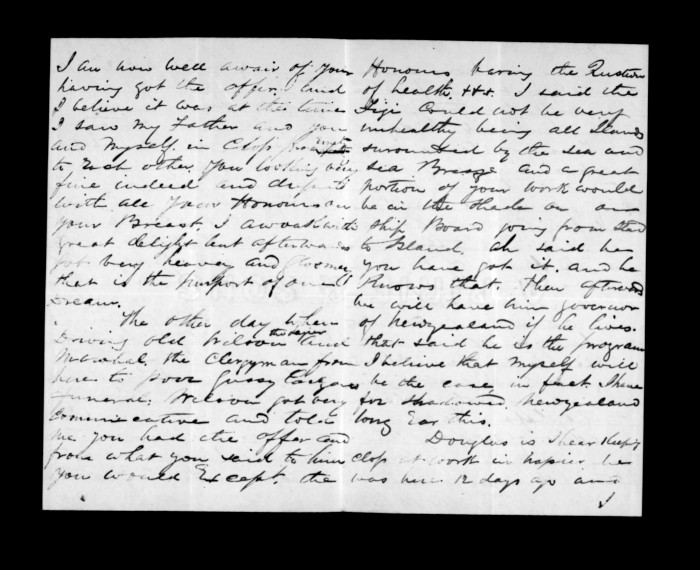 I am now well awair of your
having got the offer. and
I believe it was at the time
I saw my Father and you
and Myself in Close
to Each other. You looking very
fine indeed and
with all your Honours on
your Breast. I awoak with
great delight but afterwards
got very heavey and gloomey
that is the purport of one
Dream.
The other day when
Driving old Wilson and
Marshal. the Clergyman from
here to poor Gussy
Funeral; Wilson got very
Comunicative and told
me you had the offer and
from what you said to him
you would Except. the
Honours baring the Question
of health. I said the
Fiji Could not be very
unhealthy being all Islands
surounded by the sea and
sea Breeze and a great
portion of your work would
be in the shade or on
Ship Board going from Island
to Island. ah said he
you have got it. and he
Knows that. then afterwards
he will have him governor
of Newzealand if he lives.
that said he is the program
I believe that myself will
be the case in fact I have
for shadowed Newzealand
long Ear this.
Douglas is I hear Keeping
close at work in Napier he
was here 12 days ago and